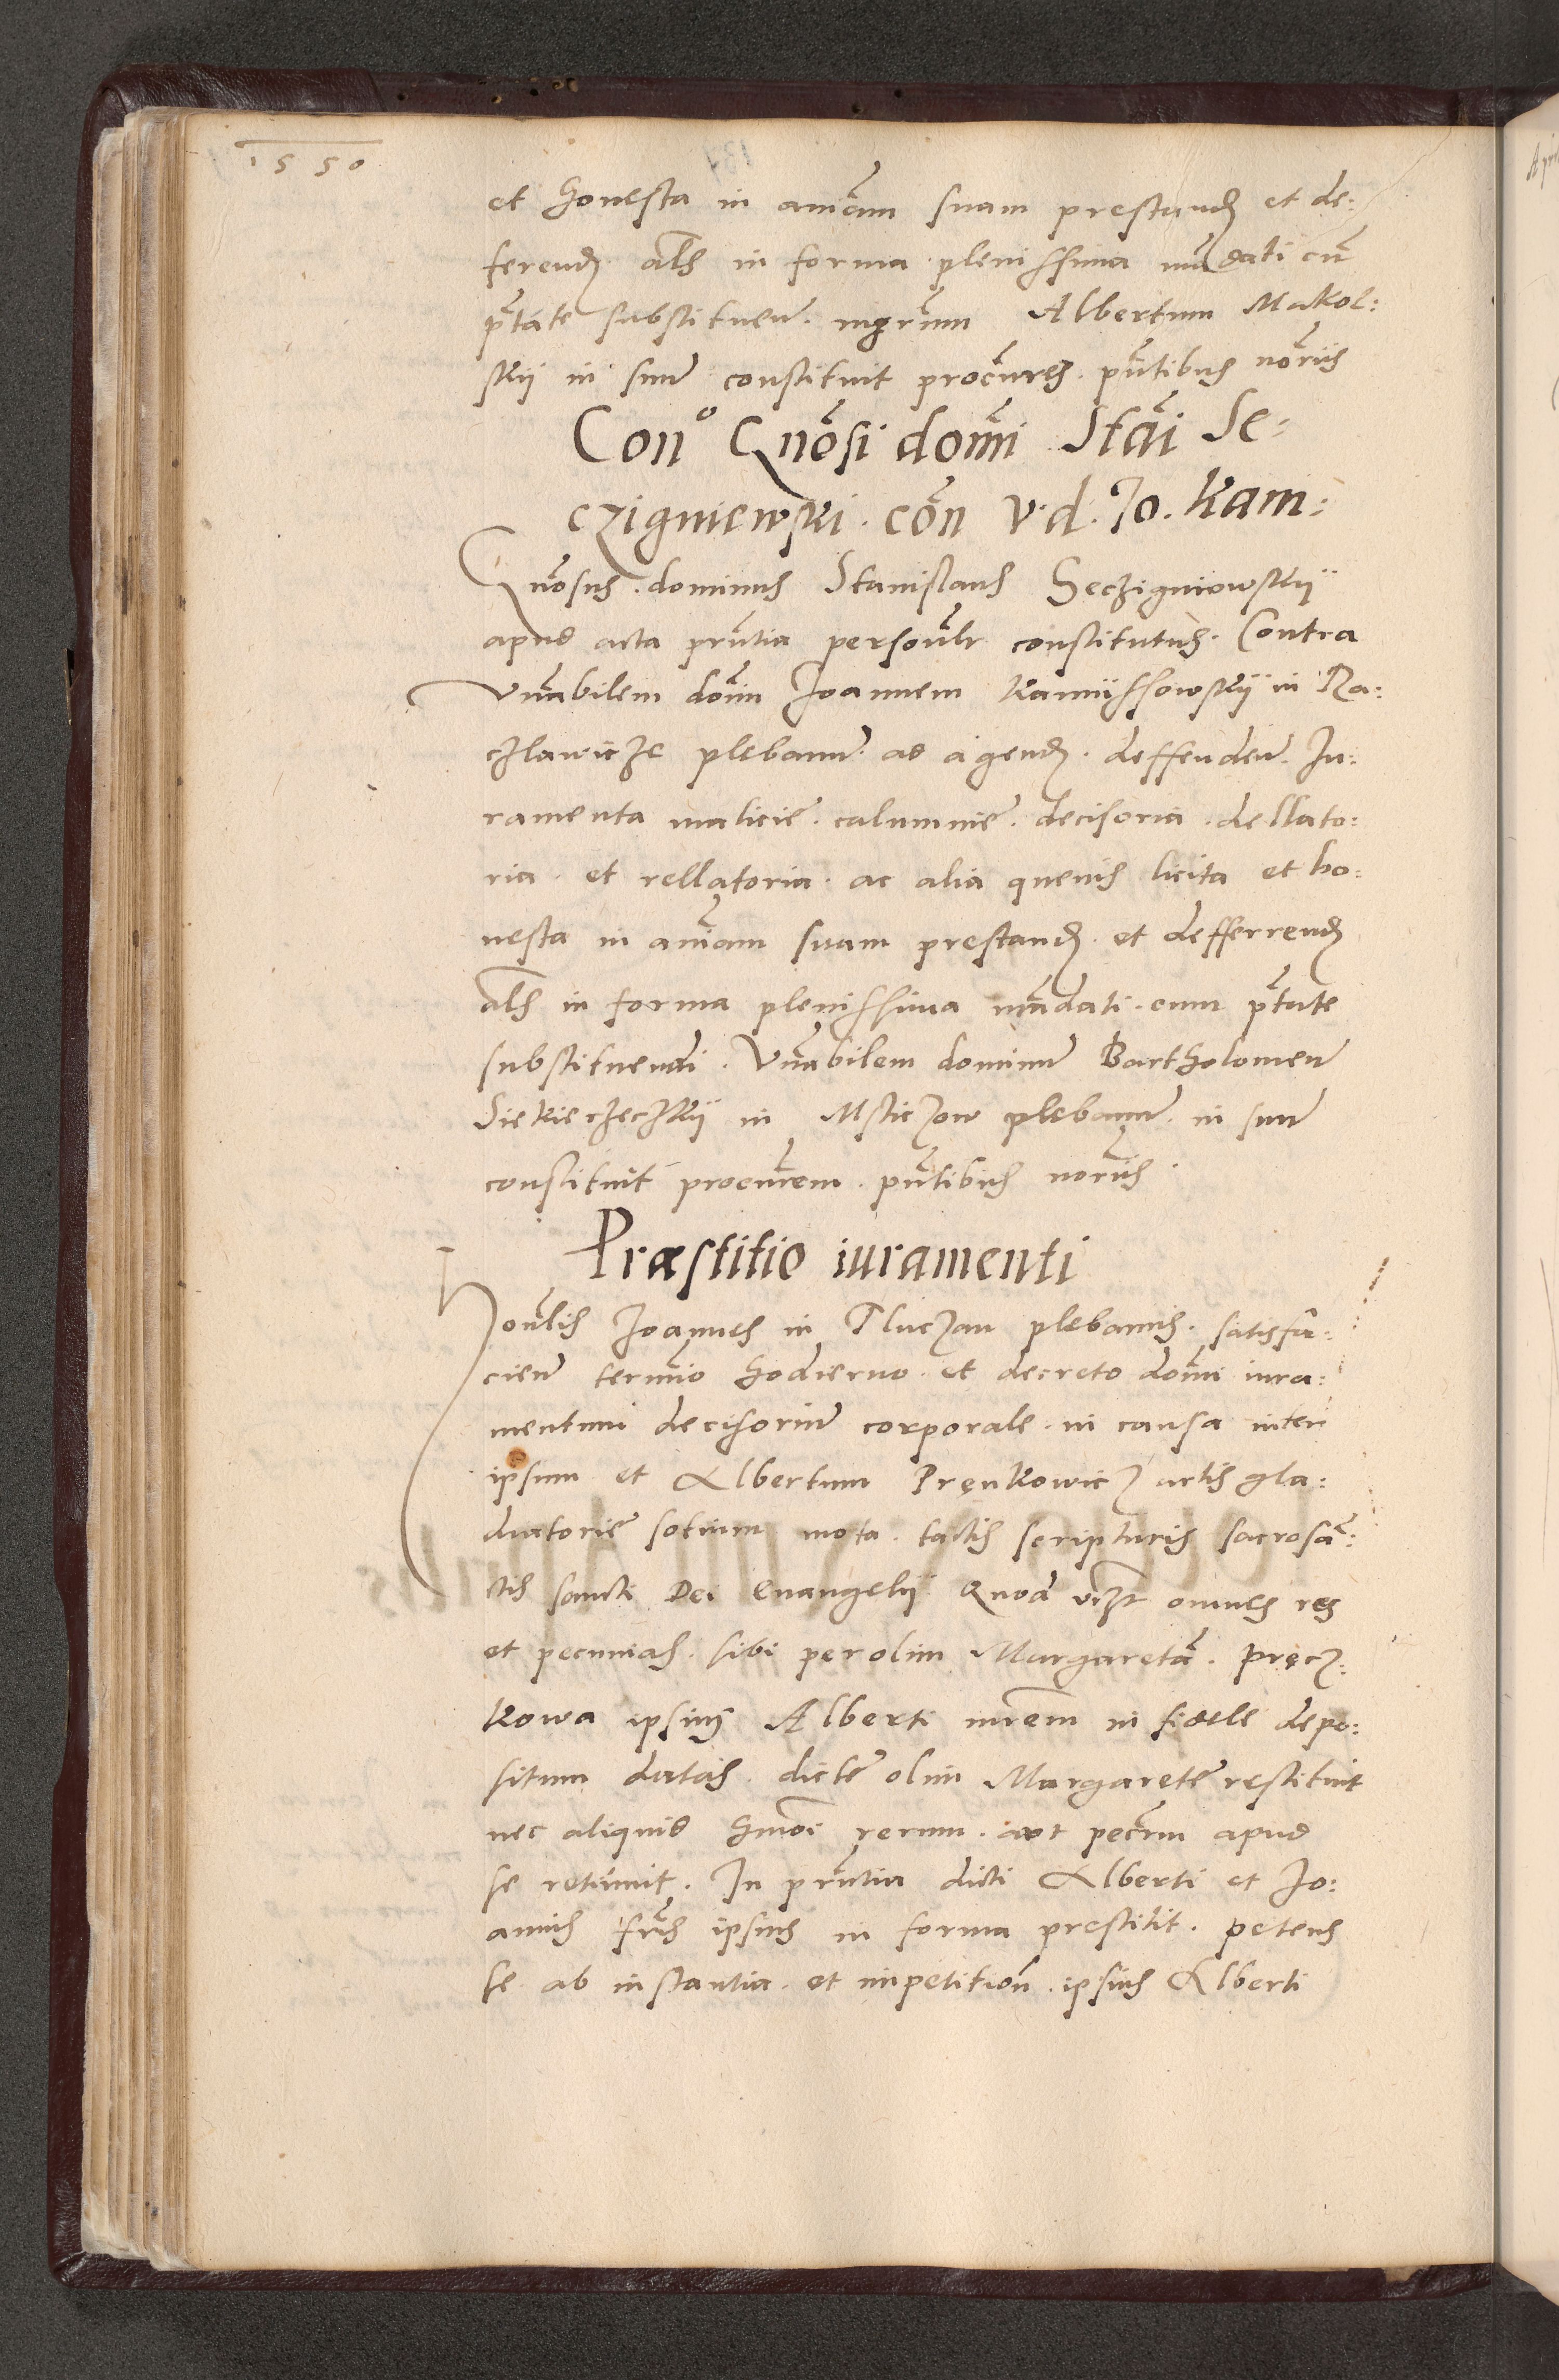 1550
et honesta in aniam suam prestand et de:
ferend als in forma plenissima mandati cu
ptate substituen. mgrum Albertum Makol:
skij in suu constituit procures. pntibus noriis
Cono Gnosi domi Stai Se:
czigniewski. con v. d. Jo. Kam:
Gnosus. dominus Stanislaus Seczigniowskij
apud acta prntia personlr constitutus. Contra
vnabilem domi Joannem Kamijssowskij in Ra:
czlawicze plebanu. ad agend. deffenden. Ju:
ramenta malicie. calumnie. decisoria. dellato:
ria. et rellatoria. ac alia quevis licita et ho:
nesta in aniam suam prestand. et defferrend
als in forma plenissima mandati. cum ptate
substituendi. Vnabilem dominu Bartholomeu
Siekierzeczkij in Msticzow plebanu. in suu
constituit procurem. pntibus noriis
Præstitio iuramenti
Honlis Joannes in Tluczan plebanus. satisfa:
cien termio hodierno. et decreto domi iura:
mentum decisoriu corporale. in causa inter
ipsum et Albertum Prenkowicz artis gla:
diatorie sotium mota. tactis scripturis sacrosa:
ctis sancti Dei Evangelij Quod vizt omnes res
et pecunias. sibi per olim Margareta. Precz:
kowa ipsius Alberti mrem in fidele depo:
situm datas. dicte olim Margarete restituit
nec aliquid hmoi rerum. aut pecrm apud
se retinuit. In prntia dicti Alberti et Jo:
annis fris ipsius in forma prestitit. petens
se ab instantia. et impetition. ipsius Alberti